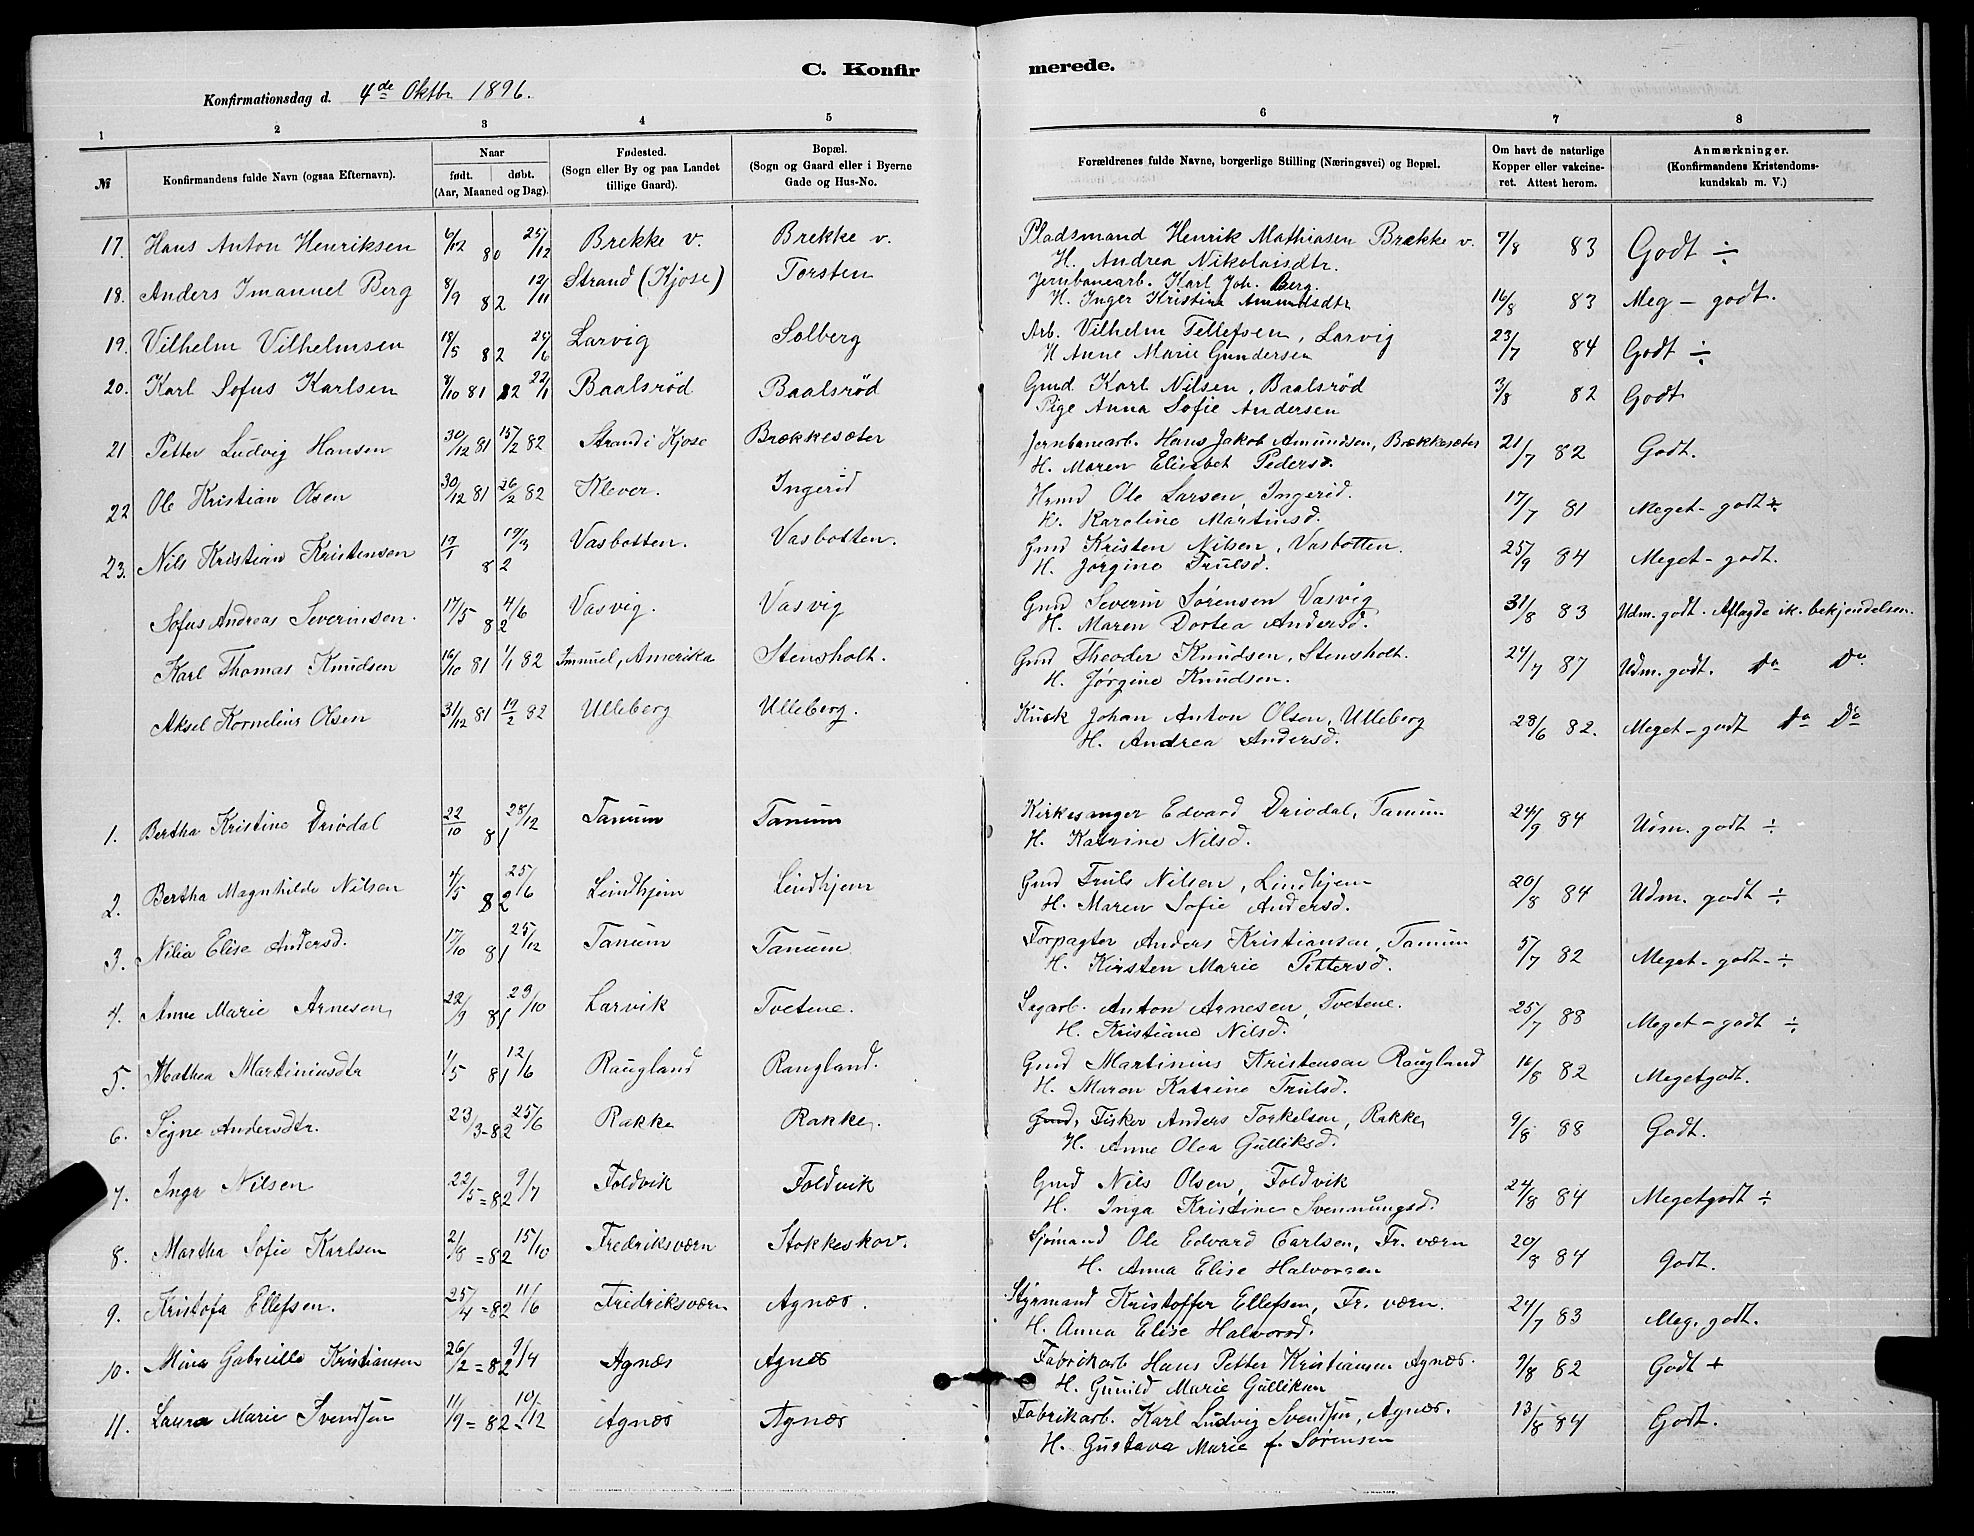 C. Konfir merede.
Konfirmationsdag d. 4de Oktbr 1896.
1 2 3 4 5 6 7 8
№ Konfirmandens fulde Navn (ogsaa Efternavn). Naar født. døbt. (Aar, Maaned og Dag). Fødested. (Sogn eller By og paa Landet tillige Gaard). Bopæl. (Sogn og Gaard eller i Byerne Gade og Hus-No. Forældrenes fulde Navne, borgerlige Stilling (Næringsvei) og Bopæl. Om havt de naturlige Kopper eller vakcineret. Attest herom. Anmærkninger. (Konfirmandens Kristendomskundskab m. V.)
17. Hans Anton Henriksen 6/12 80 25/12 Brekke v. Brekke v. Pladsmand Henrik Mathiasen Brekke v. 7/8 83 Godt ÷
H. Andrea Nikolaisdtr.
18. Anders Imanuel Berg 8/9 82 12/11 Strand (Kjose) Torsten Jernbanearb. Karl Joh. Berg. 16/8 83 Meg - godt.
H. Inger Kristine Amundsdtr
19. Vilhelm Vilhelmsen 18/5 82 24/6 Larvig Solberg Arb. Vilhelm Tellefsen, Larvig 23/7 84 Godt ÷
H Anne Marie Gundersen
20. Karl Sofus Karlsen 8/10 81 82 22/1 Baalsrød Baalsrød Gmd Karl Nilsen, Baalsrød 3/8 82 Godt
Pige Anna Sofie Andersen
21 Petter Ludvig Hansen 30/12 81 15/2 82 Strand i Kjose Brækkesæter Jernbanearb. Hans Jakob Amundsen, Brækkesæter 21/7 82 Godt.
H. Maren Elisabet Pedersd.
22 Ole Kristian Olsen 30/12 81 26/2 82 Klever. Ingerid Hrmd Ole Larsen, Ingerid. 17/7 81 Meget - godt ÷
H. Karoline Martinsd.
23. Nils Kristian Kristensen 19/1 82 19/3 Vasbotten. Vasbotten. Gmd Kristen Nilsen, Vasbotten. 25/9 84 Meget - godt.
H. Jørgine Trulsd.
Sofus Andreas Severinsen. 17/5 82 4/6 Vasvig. Vasvig Gmd Severin Sørensen Vasvig 31/8 83 Udm. godt. Aflagde ik. bekjendelsen.
H. Maren Dortea Andersd.
Karl Thomas Knudsen 16/10 81 1/1 82 Imnuel, Amerika Stensholt. Gmd Theoder Knudsen, Stensholt. 24/7 87 Udm. godt. Do Do
H. Jørgine Knudsen.
Aksel Kornelius Olsen 31/12 81 19/2 82 Ulleberg Ulleberg. Kusk Johan Anton Olsen, Ulleberg 28/6 82. Meget - godt Do Do
H. Andrea Andersd.
1. Bertha Kristine Driødal 22/10 81 28/12 Tanum Tanum Kirkesanger Edvard Driødal, Tanum 24/9 84 Udm. godt ÷
H. Katrine Nilsd.
2. Bertha Magnhilde Nilsen 4/5 82 25/6 Lindhjem Lindhjem Gmd Truls Nilsen, Lindhjem 20/8 84 Udm. godt ÷
H. Maren Sofie Andersd.
3. Nilia Elise Andersd. 17/10 81 25/12 Tanum Tanum. Forpagter Anders Kristiansen, Tanum 5/7 82 Meget - godt - ÷
H. Kirsten Marie Pettersd.
4. Anne Marie Arnesen, 22/9 81 23/10 Larvik Tvetene. Sagarb. Anton Arnesen, Tvetene. 25/7 88 Meget - godt ÷
H. Kristiane Nilsd.
5. Mathea Martiniusdtr 1/5 81 12/6 Raugland Raugland. Gmd Martinius Kristensen Raugland 16/8 82 Megetgodt.
H. Maren Katrine Trulsd.
6. Signe Andersdtr. 23/3 - 82 25/6 Rakke Rakke. Gmd, Fisker Anders Torkelsen, Rakke, 9/8 88 Godt.
H. Anne Olea Gulliksd.
7. Inga Nilsen 22/5 = 82 9/7 Foldvik Foldvik Gmd Nils Olsen, Foldvik 24/8 84 Megetgodt ÷
H. Inga Kristine Svennungsd.
8. Martha Sofie Karlsen 2/8 = 82 15/10 Fredriksværn Stokkeskov. Sjømand Ole Edvard Carlsen, Fr. værn 20/8 84 Godt.
H. Anna Elise Halvorsen
9. Kristofa Ellefsen. 25/4 = 82 11/6 Fredriksværn Agnæs. Styrmand Kristoffer Ellefsen, Fr. værn. 24/7 83 Meg. godt.
H. Anna Elise Halvorsd.
10. Mina Gabrielle Kristiansen 26/2 = 82 9/4 Agnæs Agnæs Fabrikarb Hans Petter Kristiansen Agnæs. 9/8 82 Godt +
H. Gunild Marie Gulliksen
11. Laura Marie Svendsen 11/9 = 82 10/12 Agnæs Agnæs Fabrikarb. Karl Ludvig Svendsen, Agnæs. 13/8 84 Godt.
H. Gustava Marie f. Sørensen